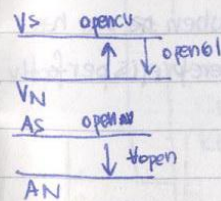 VS opencv
openGl
VN
AS open
open
AN